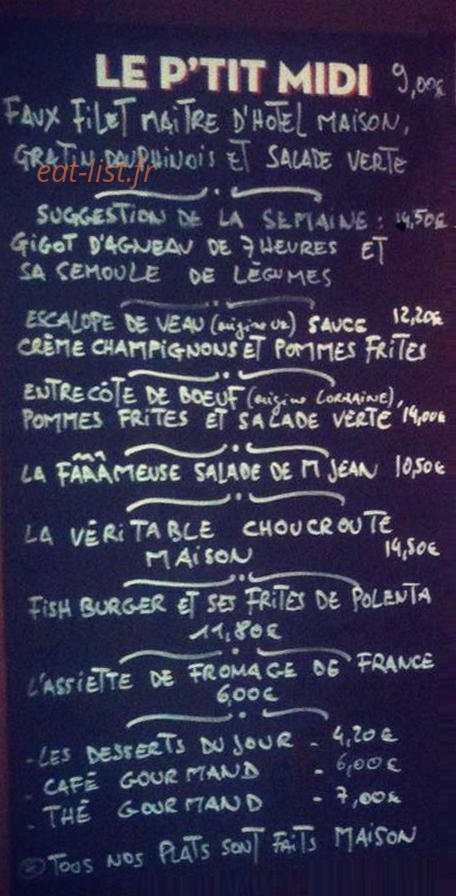 LE P'TIT MIDI 9,00€
FAUX FILET MAITRE D'HOTEL MAISON,
GRATIN DAUPHINOIS ET SALADE VERTE
eat-list.fr
SUGGESTION DE LA SEMAINE : 14,50€
GIGOT D'AGNEAU DE 7 HEURES ET
SA SEMOULE DE LÉGUMES
ESCALOPE DE VEAU (origine UE) SAUCE 12,20€
CRÈME CHAMPIGNONS ET POMMES FRITES
ENTRECÔTE DE BOEUF (origine LORRAINE),
POMMES FRITES ET SALADE VERTE 14,00€
LA FÂÂÂMEUSE SALADE DE M JEAN 10,50€
LA VÉRITABLE CHOUCROUTE
MAISON 14,50€
FISH BURGER ET SES FRITES DE POLENTA
11,80€
L'ASSIETTE DE FROMAGE DE FRANCE
6,00€
- LES DESSERTS DU JOUR - 4,20€
- CAFÉ GOURMAND - 6,00€
- THÉ GOURMAND - 7,00€
TOUS NOS PLATS SONT FAITS MAISON